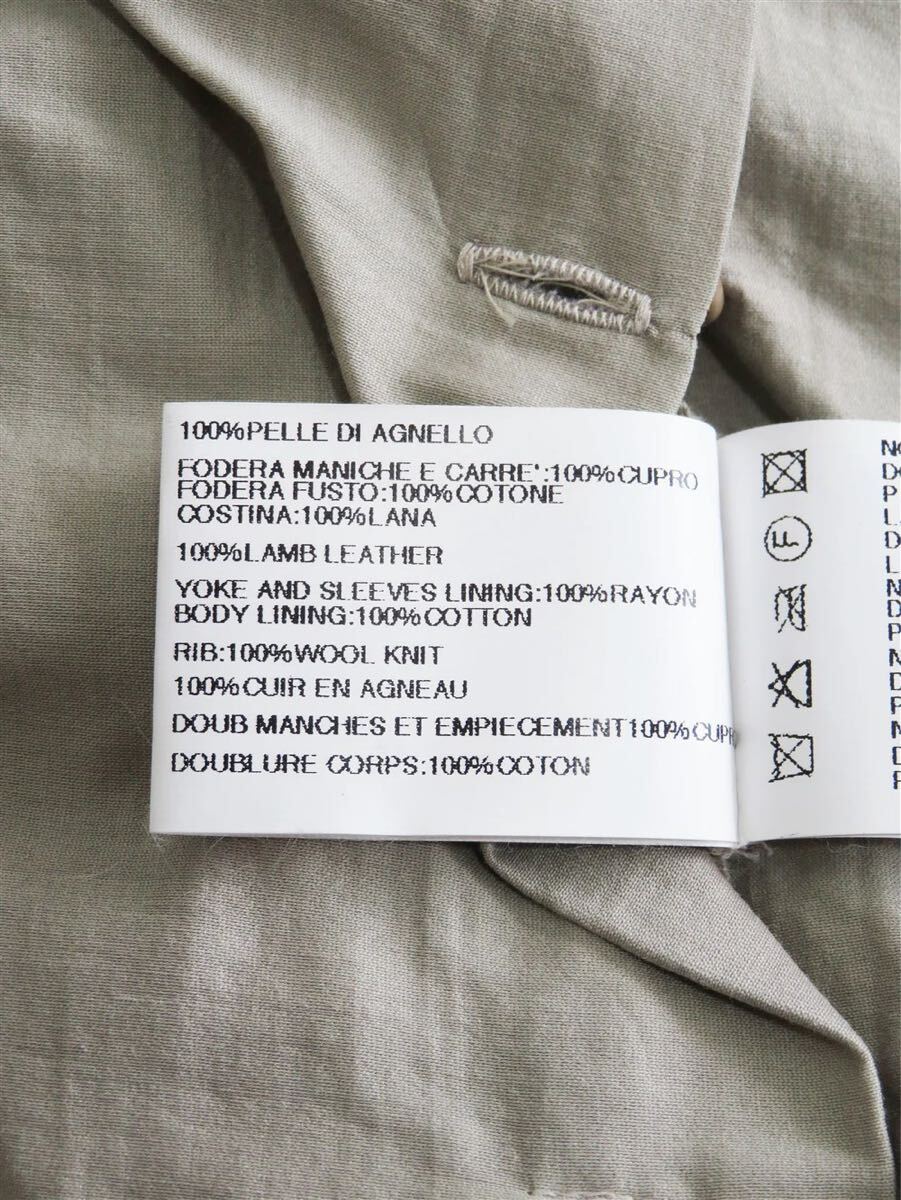 100%PELLE DI AGNELLO
FODERA MANICHE E CARRE':100%CUPRO
FODERA FUSTO:100%COTONE
COSTINA:100%LANA
100%LAMB LEATHER
YOKE AND SLEEVES LINING:100%RAYON
BODY LINING:100%COTTON
RIB:100%WOOL KNIT
100%CUIR EN AGNEAU
DOUB MANCHES ET EMPIECEMENT100%CUPR
DOUBLURE CORPS:100%COTON
F